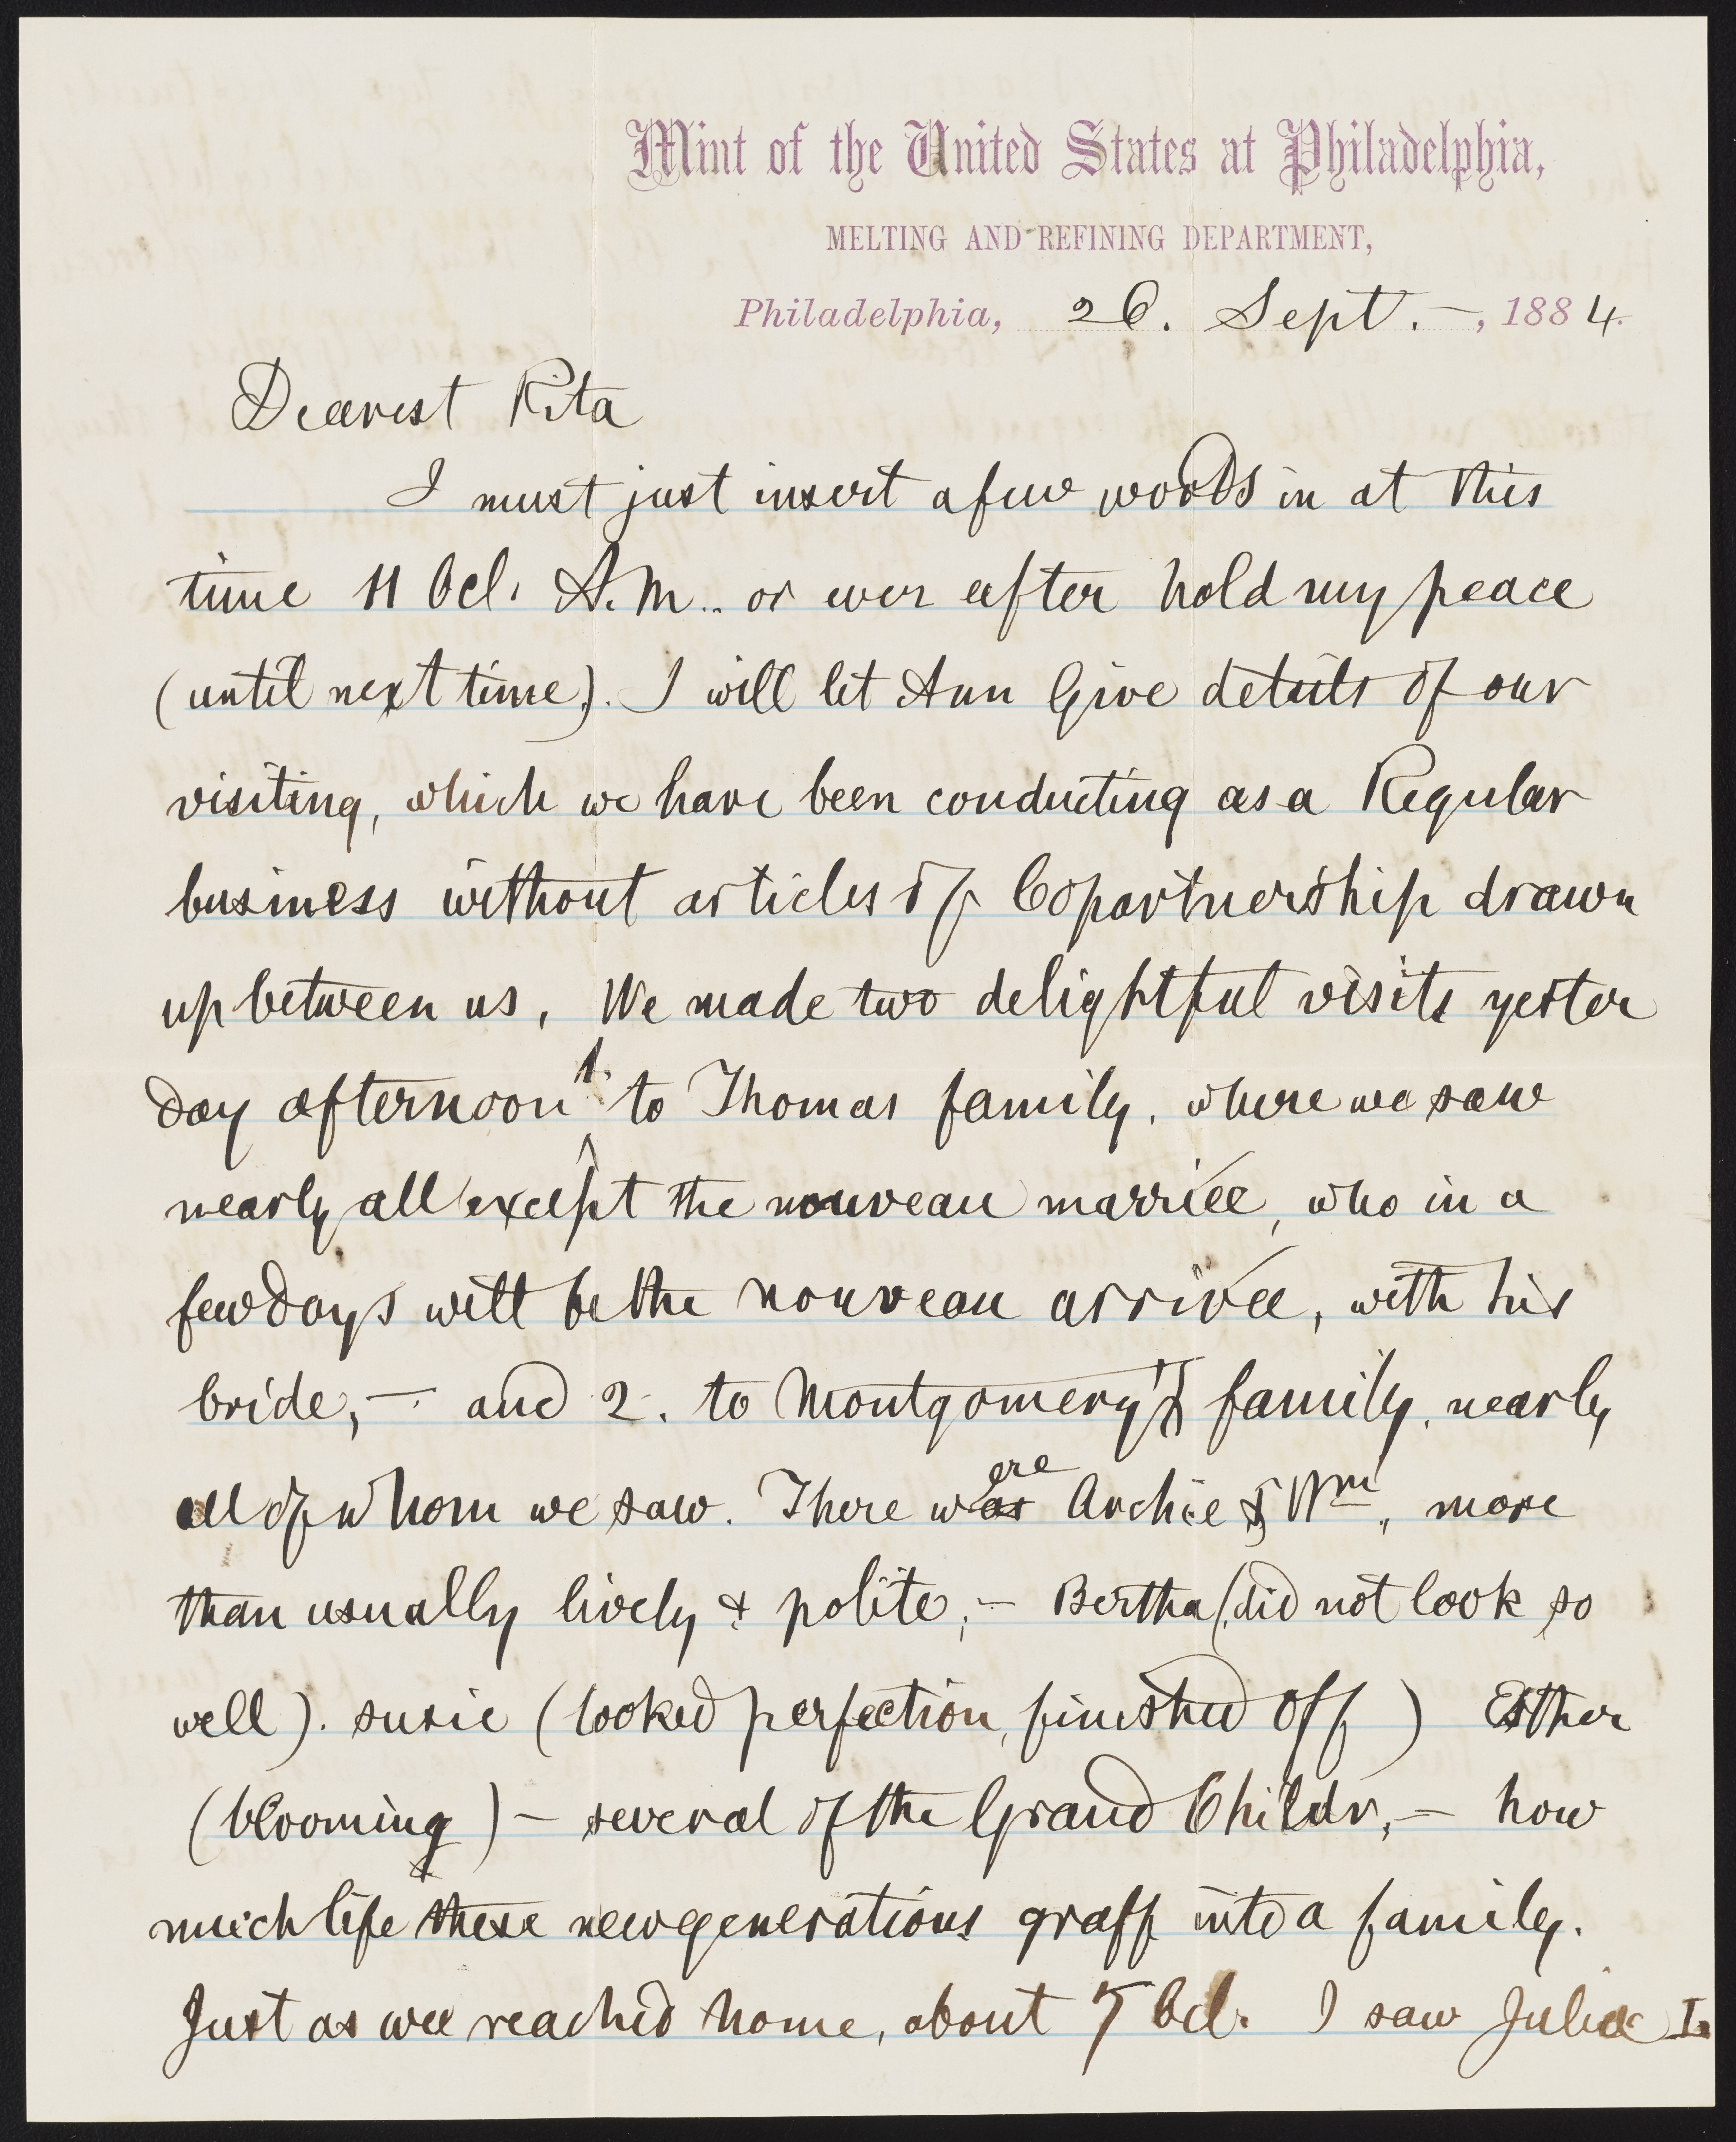 Mint of the United States at Philadelphia,
MELTING AND REFINING DEPARTMENT,
Philadelphia, 26. Sept. —, 1884.
Dearest Rita
I must just insert a few words in at this
time 11 Ocl. A.M.. or ever after hold my peace
(until next time). I will let Ann Give details of our
visiting, which we have been conducting as a Regular
business without articles of Copartnership drawn
up between us, We made two delightful visits yester
day afternoon 1. to Thomas family, where we saw
nearly all except the nouveau marriée, who in a
few days will be the nouveau arrivée, with his
bride, — and 2. to Montgomery's family, nearly
all of whom we saw. There was ere Archie & Wm, more
than usually lively & polite, — Bertha (did not look so
well). Susie (looked perfection, finished off) Esther
(blooming) — several of the Grand Childr, — how
much life these new generations graff into a family.
Just as we reached home, about 5 Ocl. I saw Julia I.